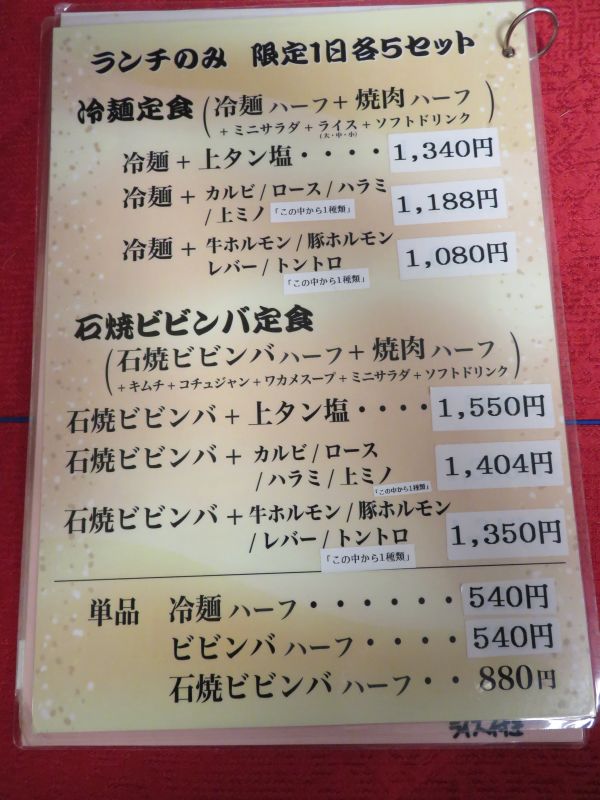 ランチのみ 限定1日各5セット
冷麺定食(冷麺ハーフ+焼肉ハーフ
+ミニサラダ+ライス+ソフトドリンク)
(大・中・小)
冷麺+上タン塩・・・・1,340円
冷麺+カルビ/ロース/ハラミ
/上ミノ「この中から1種類」 1,188円
冷麺+牛ホルモン/豚ホルモン
レバー/トントロ 1,080円
「この中から1種類」
石焼ビビンバ定食
(石焼ビビンバハーフ+焼肉ハーフ
+キムチ+コチュジャン+ワカメスープ+ミニサラダ+ソフトドリンク)
石焼ビビンバ+上タン塩・・・・1,550円
石焼ビビンバ+カルビ/ロース
/ハラミ/上ミノ 1,404円
「この中から1種類」
石焼ビビンバ+牛ホルモン/豚ホルモン
/レバー/トントロ 1,350円
「この中から1種類」
単品 冷麺ハーフ・・・・・・540円
ビビンバハーフ・・・・・540円
石焼ビビンバハーフ・・880円